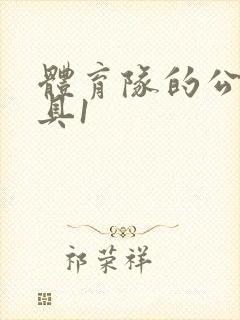 體育隊的公
具1
祁荣祥